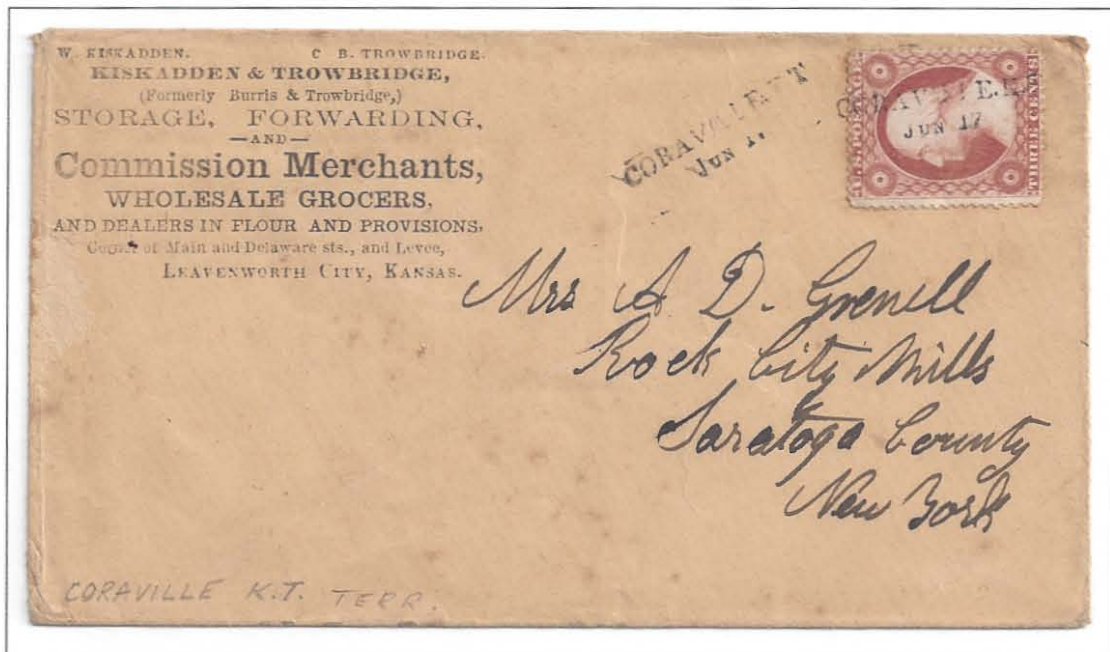 W. KISKADDEN. C. B. TROWBRIDGE.
KISKADDEN & TROWBRIDGE,
(Formerly Burris & Trowbridge,)
STORAGE, FORWARDING,
—AND—
Commission Merchants,
WHOLESALE GROCERS,
AND DEALERS IN FLOUR AND PROVISIONS,
Corner of Main and Delaware sts., and Levee,
LEAVENWORTH CITY, KANSAS.
CORAVILLE K T
JUN 17
U.S. POSTAGE
THREE CENTS
JUN 17
Mrs A D. Grenell
Rock City Mills
Saratoga County
New York
CORAVILLE K.T. TERR.